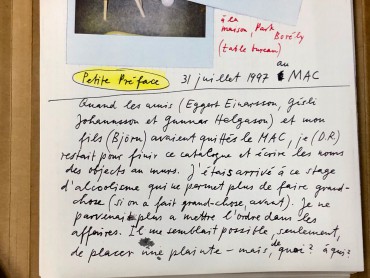 à la
maison, Park
Borély
(table bureau)
Petite Préface 31 juillet 1997 au MAC
Quand les amis (Eggert Einarsson, Gísli
Johannsson et Gunnar Helgason) et mon
fils (Björn) avaient quittés le MAC, je (D.R.)
restait pour finir ce catalogue et écrire les noms
des objects au murs. J'étais arrivé à ce stage
d'alcoolisme qui ne permet plus de faire grand-
chose (si on a fait grand-chose, avant). Je ne
parvenai plus a mettre l'ordre dans les
affaires. Il me semblait possible, seulement,
de placer une plainte – mais, de quoi? à qui?